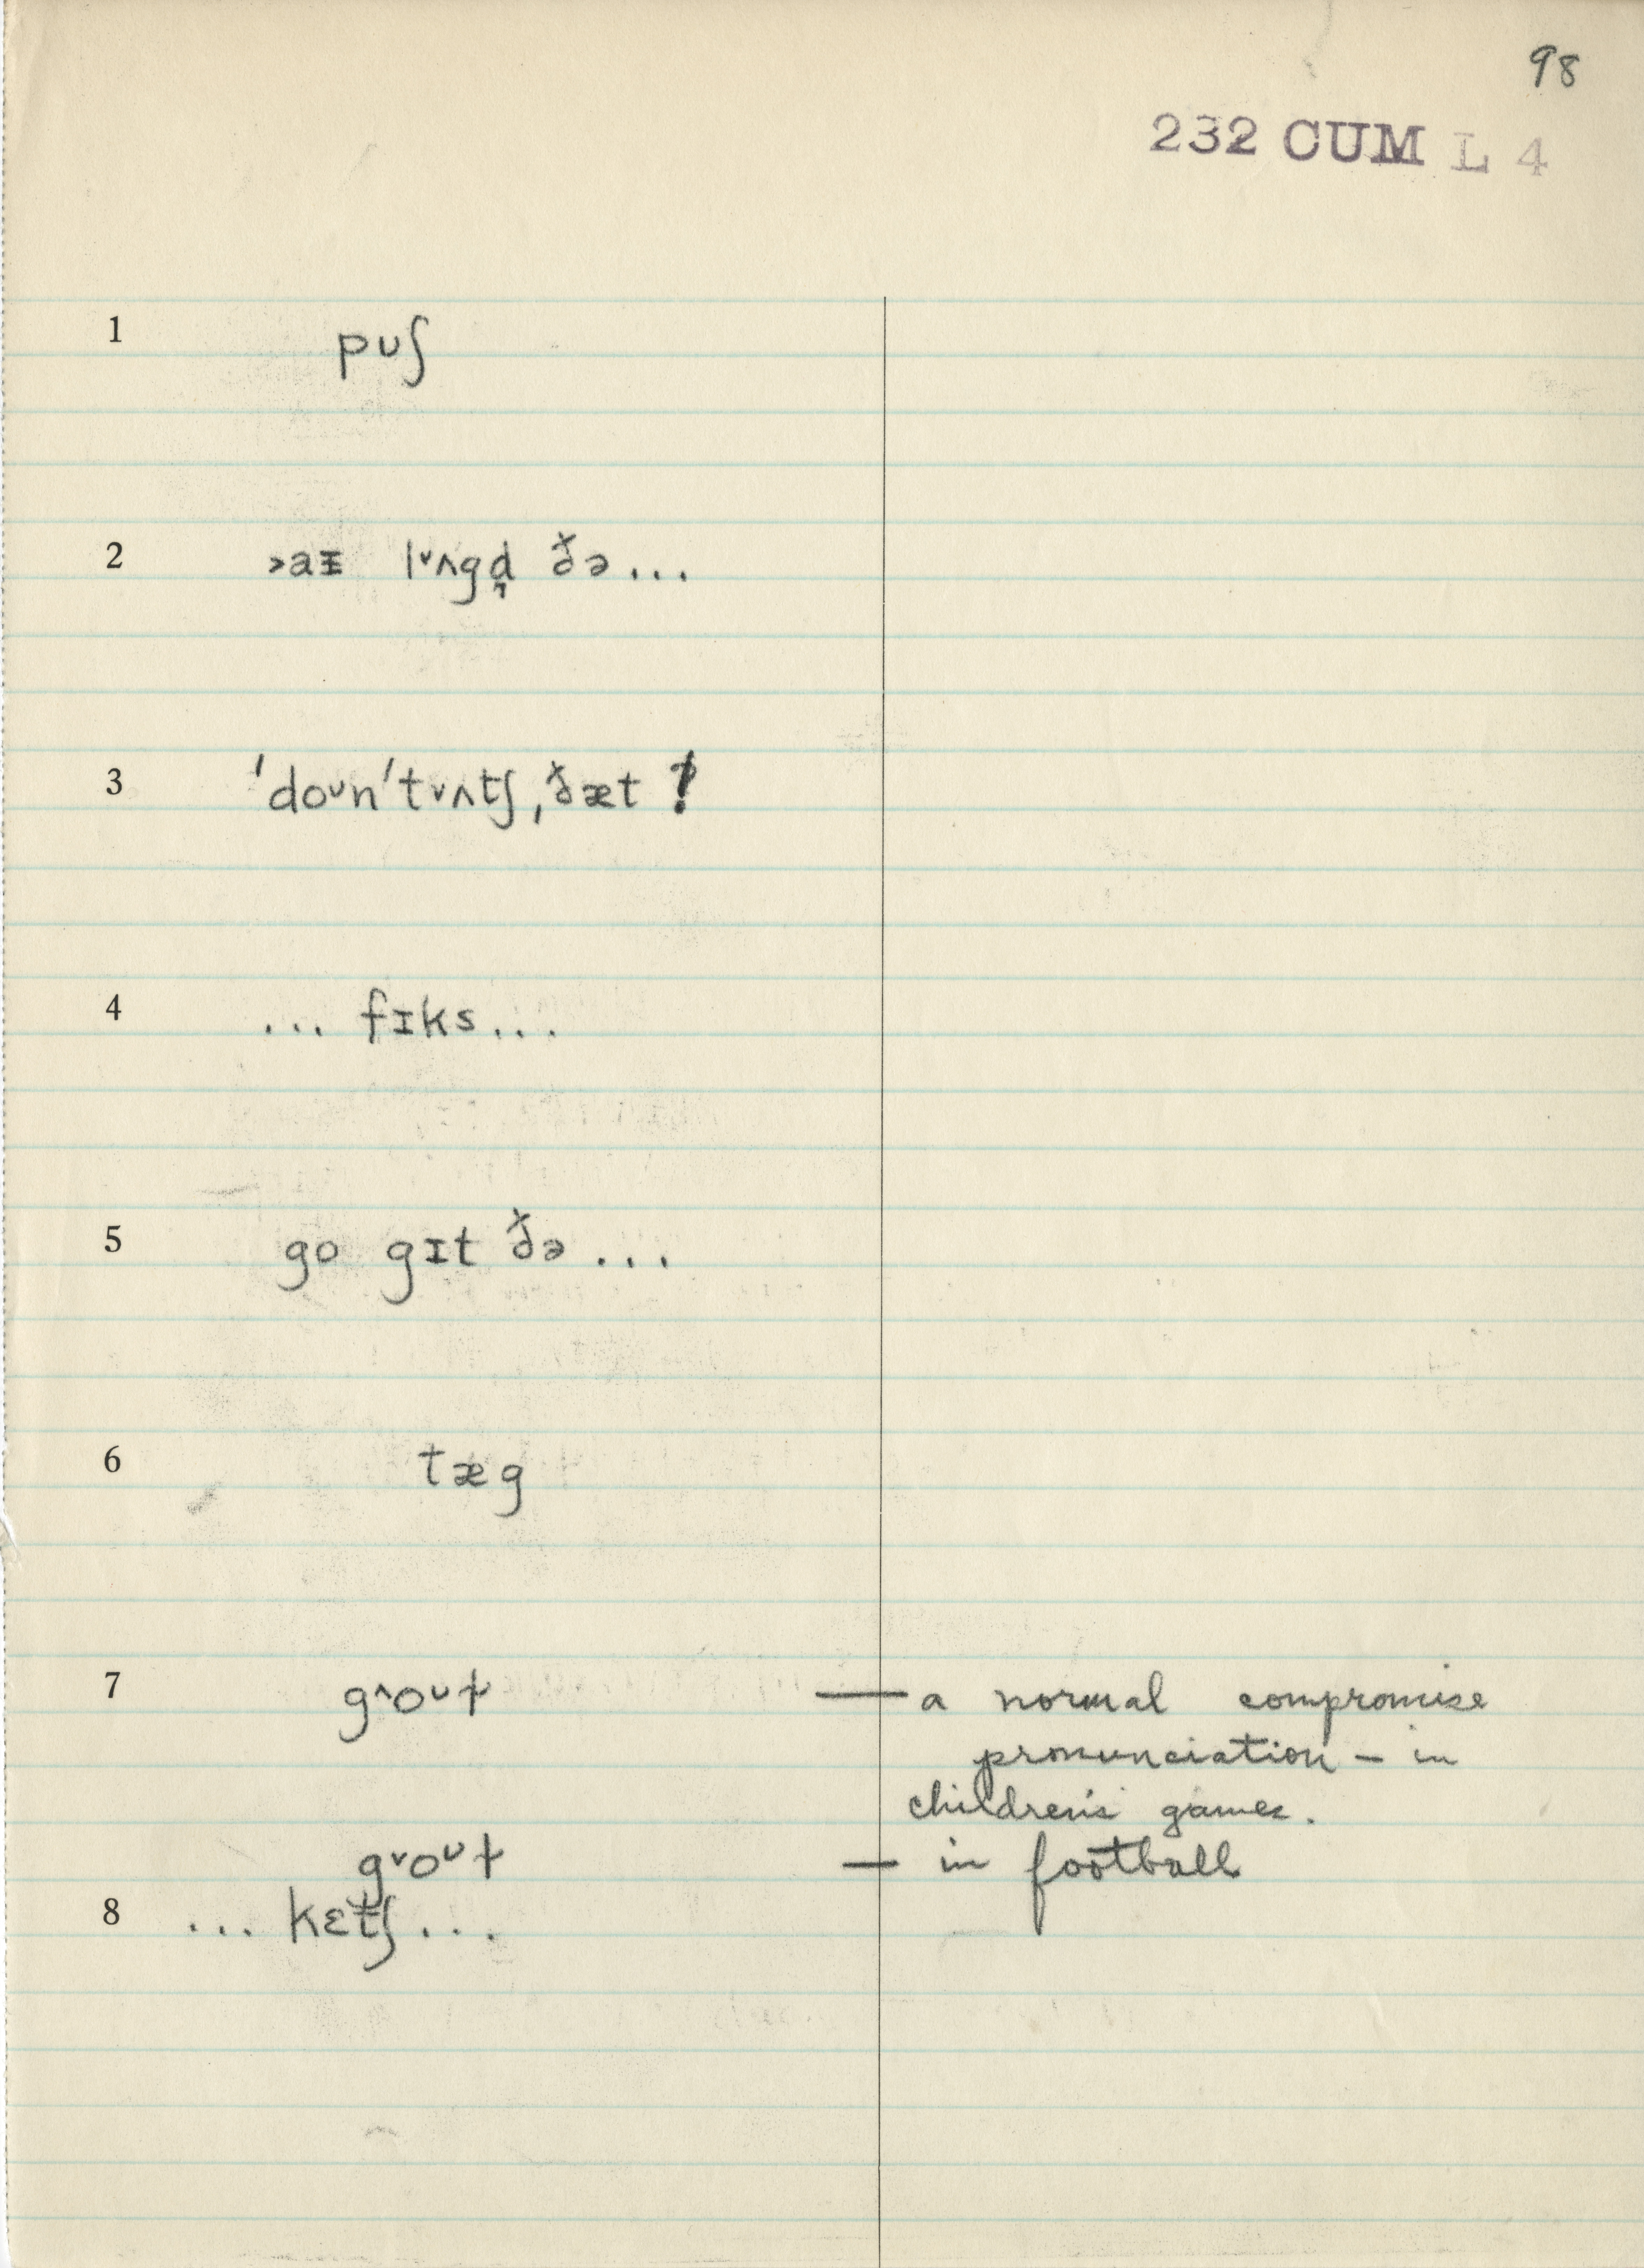 98
232 CUM L 4
1 pʊʃ
2 ˃aᵻ lˇʌgd̪ ðə...
3 ˈdoᴜnˈtˇʌtʃˌðæt !
4 ... fɪks...
5 go gɪt ðə ...
6 tæg
7 g^oᴜɫ — a normal compromise
pronunciation – in
children's games.
gˇoᴜɫ — in football
8 ... kɛtʃ...